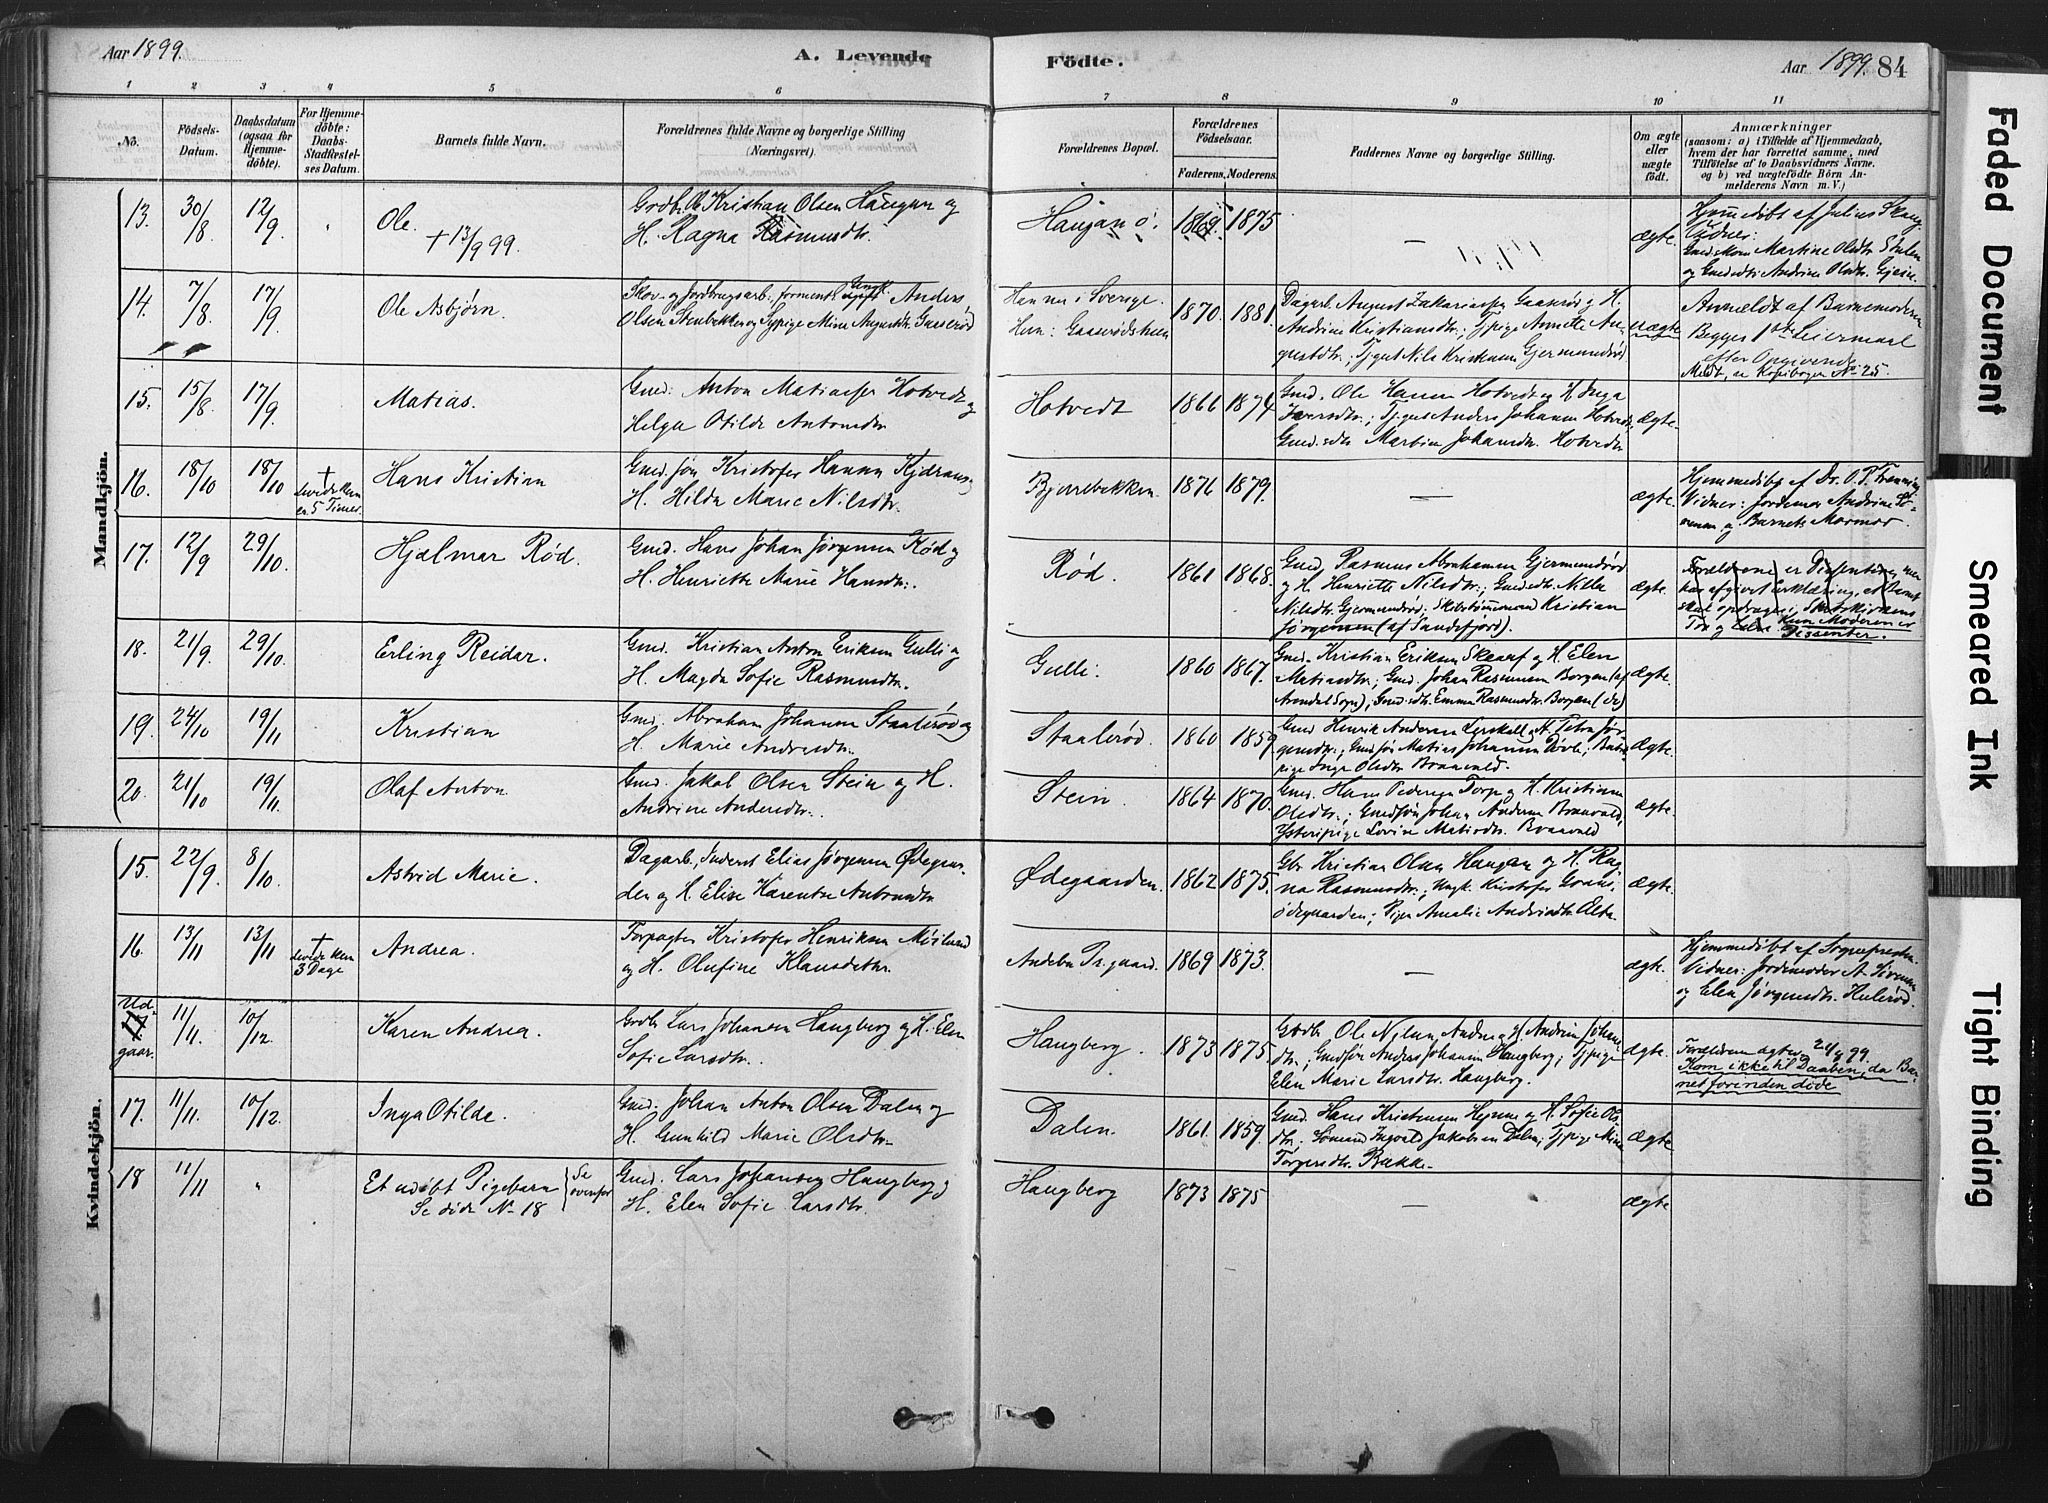 Aar 1899.
A. Levende
Födte.
Aar 1899. 84
1 2 3 4 5 6 7 8 9 10 11
No.
Födsels-
Datum.
Daabsdatum
(ogsaa for
Hjemme-
döbte).
For Hjemme-
döbte:
Daabs-
Stadfæstel-
ses Datum.
Barnets fulde Navn.
Forældrenes fulde Navne og borgerlige Stilling
(Næringsvei).
Forældrenes Bopæl.
Forældrenes
Födselsaar.
Faderens. Moderens.
Faddernes Navne og borgerlige Stilling.
Om ægte
eller
uægte
födt.
Anmærkninger
(saasom: a) i Tilfælde af Hjemmedaab,
hvem der har forrettet samme, med
Tilföielse af to Daabsvidners Navne.
og b) ved uægtefödte Börn An-
melderens Navn m. V.)
Mandkjön.
13. 30/8 12/9 " Ole.
+ 13/9 99.
Grdb. Ole Kristian Olsen Haugan og
H. Ragna Rasmusdtr.
Haugan ö. 1869. 1875 — ægte.
Hjemmedöbt af Julius Skaug
Vidner:
Martine Olsdtr.
og Andrine Olsdtr.
14. 7/8 17/9 Ole Asbjørn.
Skov- og Jordbrugsarb., forment. Ungk. Anders
Olsen Stenbekken og Sypige Mina Augustdtr. Gaaserød
Han nu i Sverige.
Hun: Gaaserødskeen
1870. 1881.
Dagarb. August Zakariassen Gaaserød og H.
Andrine Kristiansdtr.; Tjpige Annette Au-
gustdtr.; Tjgut Nils Kristensen Gjermundrød
uægte
Anmeldt af Barnemoderen
Begges 1ste Leiermaal
efter Opgivende
Meldt, se Kopibogen No 25.
15. 15/8 17/9 Matias.
Gmd. Anton Matiassen Hotvedt og
Helga Otilde Antonsdtr
Hotvedt 1866 1874
Gmd. Ole Hansen Hotvedt og H. Inga
Iversdtr.; Tjgut Anders Johansen Hotvedt;
Gmd.sdtr Martine Johansdtr. Hotvedt
ægte.
16. 18/10 18/10 +
levede kun
5 Timer.
Hans Kristian
Gmd.søn Kristofer Hansen Kjæraas og
H. Hilda Marie Nilsdtr.
Bjørnebekken. 1876 1879. — ægte.
Hjemmedöbt af Dr. O. T.
Vidner: Jordemor Andrine
og Barnets Mormor.
17. 12/9 29/10. Hjalmar Rød.
Gmd. Hans Johan Jørgensen Rød og
H. Henriette Marie Hansdtr.
Rød. 1861 1868.
Gmd. Rasmus Abrahamsen Gjermundrød
og H. Henriette Nilsdtr.; Gmdsdtr. Nilla
Nilsdtr. Gjermundrød; Skibstømmermand Kristian
Jørgensen (af Sandefjord).
ægte.
Forældrene er Dissentere, men
har afgivet Erklæring, at Barnet
skal opdrages i Statskirkens
Tro og Lære. Kun Moderen er
Dissenter.
18. 21/9. 29/10. Erling Reidar.
Gmd. Kristian Anton Eriksen Gulli og
H. Magda Sofie Rasmusdtr.
Gulli. 1860 1867.
Gmd. Kristian Eriksen Skarsf og H. Elen
Matiasdtr.; Gmd. Johan Rasmussen Borgen (af
Arendal Sogn); Gmd.sdtr. Emma Rasmusdtr. Borgen
ægte.
19. 24/10 19/11 Kristian
Gmd. Abraham Johansen Staalerød og
H. Marie Andersdtr.
Staalerød. 1860 1859
Gmd Henrik Andersen og H. Petra Jør-
gensdtr.; Gmdsøn Matias Johansen
pige Inga Olsdtr Braavald.
ægte.
20. 21/10 19/11. Olaf Anton.
Gmd. Jakob Olsen Stein og H.
Andrine Andersdtr.
Stein. 1864 1870.
Gmd. Hans Pedersen Torp og H. Kristiane
Olsdtr.; Gmdsøn Johan Andersen Braavald,
Lovise Matisdtr. Braavald
ægte
Kvindekjön.
15. 22/9. 8/10. Astrid Marie.
Dagarb., Inderst Elias Jørgensen Ødegaar-
den og H. Elise Karentse Antonsdtr
Ødegaarden. 1862 1875.
Gbr. Kristian Olsen Haugan og H. Rag-
na Rasmusdtr.; Ungk. Kristofer
ødegaarden; Pige Amalie Andreasdtr.
ægte.
16. 13/11 13/11 +
levede kun
3 Dage
Andrea.
Forpagter Kristofer Henriksen Møilund
og H. Olufine Klausdtr.
Andebu Pr.gaard. 1869 1873. — ægte.
Hjemmedöbt af Sognepresten
Vidner: Jordemoder A. Sörensen
og Elen Jørgensdtr. Hulerød.
Ud-
17.
gaar.
11/11. 10/12. Karen Andrea.
Grdbr Lars Johansen Haugberg og H. Elen
Sofie Larsdtr.
Haugberg. 1873 1875
Grdb. Ole Andrea og H. Andrine Johans-
dtr.; Gmdsøn Anders Johansen Haugberg; Tjpige
Elen Marie Larsdtr. Haugberg.
ægte.
Forældrene ægtev. 99.
Kom ikke til Daaben, da Bar-
net forinden døde
17. 11/11. 10/12. Inga Otilde.
Gmd. Johan Anton Olsen Dalen og
H. Gunhild Marie Olsdtr.
Dalen. 1861. 1859.
Gmd. Hans Kristensen og H. Sofie Ols-
dtr. Sømand Ingvald Jakobsen Dalen; Tjpige Mina
Torgersdtr. Bakke.
ægte
18 11/11 " Et udöbt Pigebarn
Se döde No 18
Se
ovenfor
Gmd. Lars Johansen Haugberg og
H. Elen Sofie Larsdtr.
Haugberg 1873 1875 — ægte
Faded Document
Smeared Ink
Tight Binding